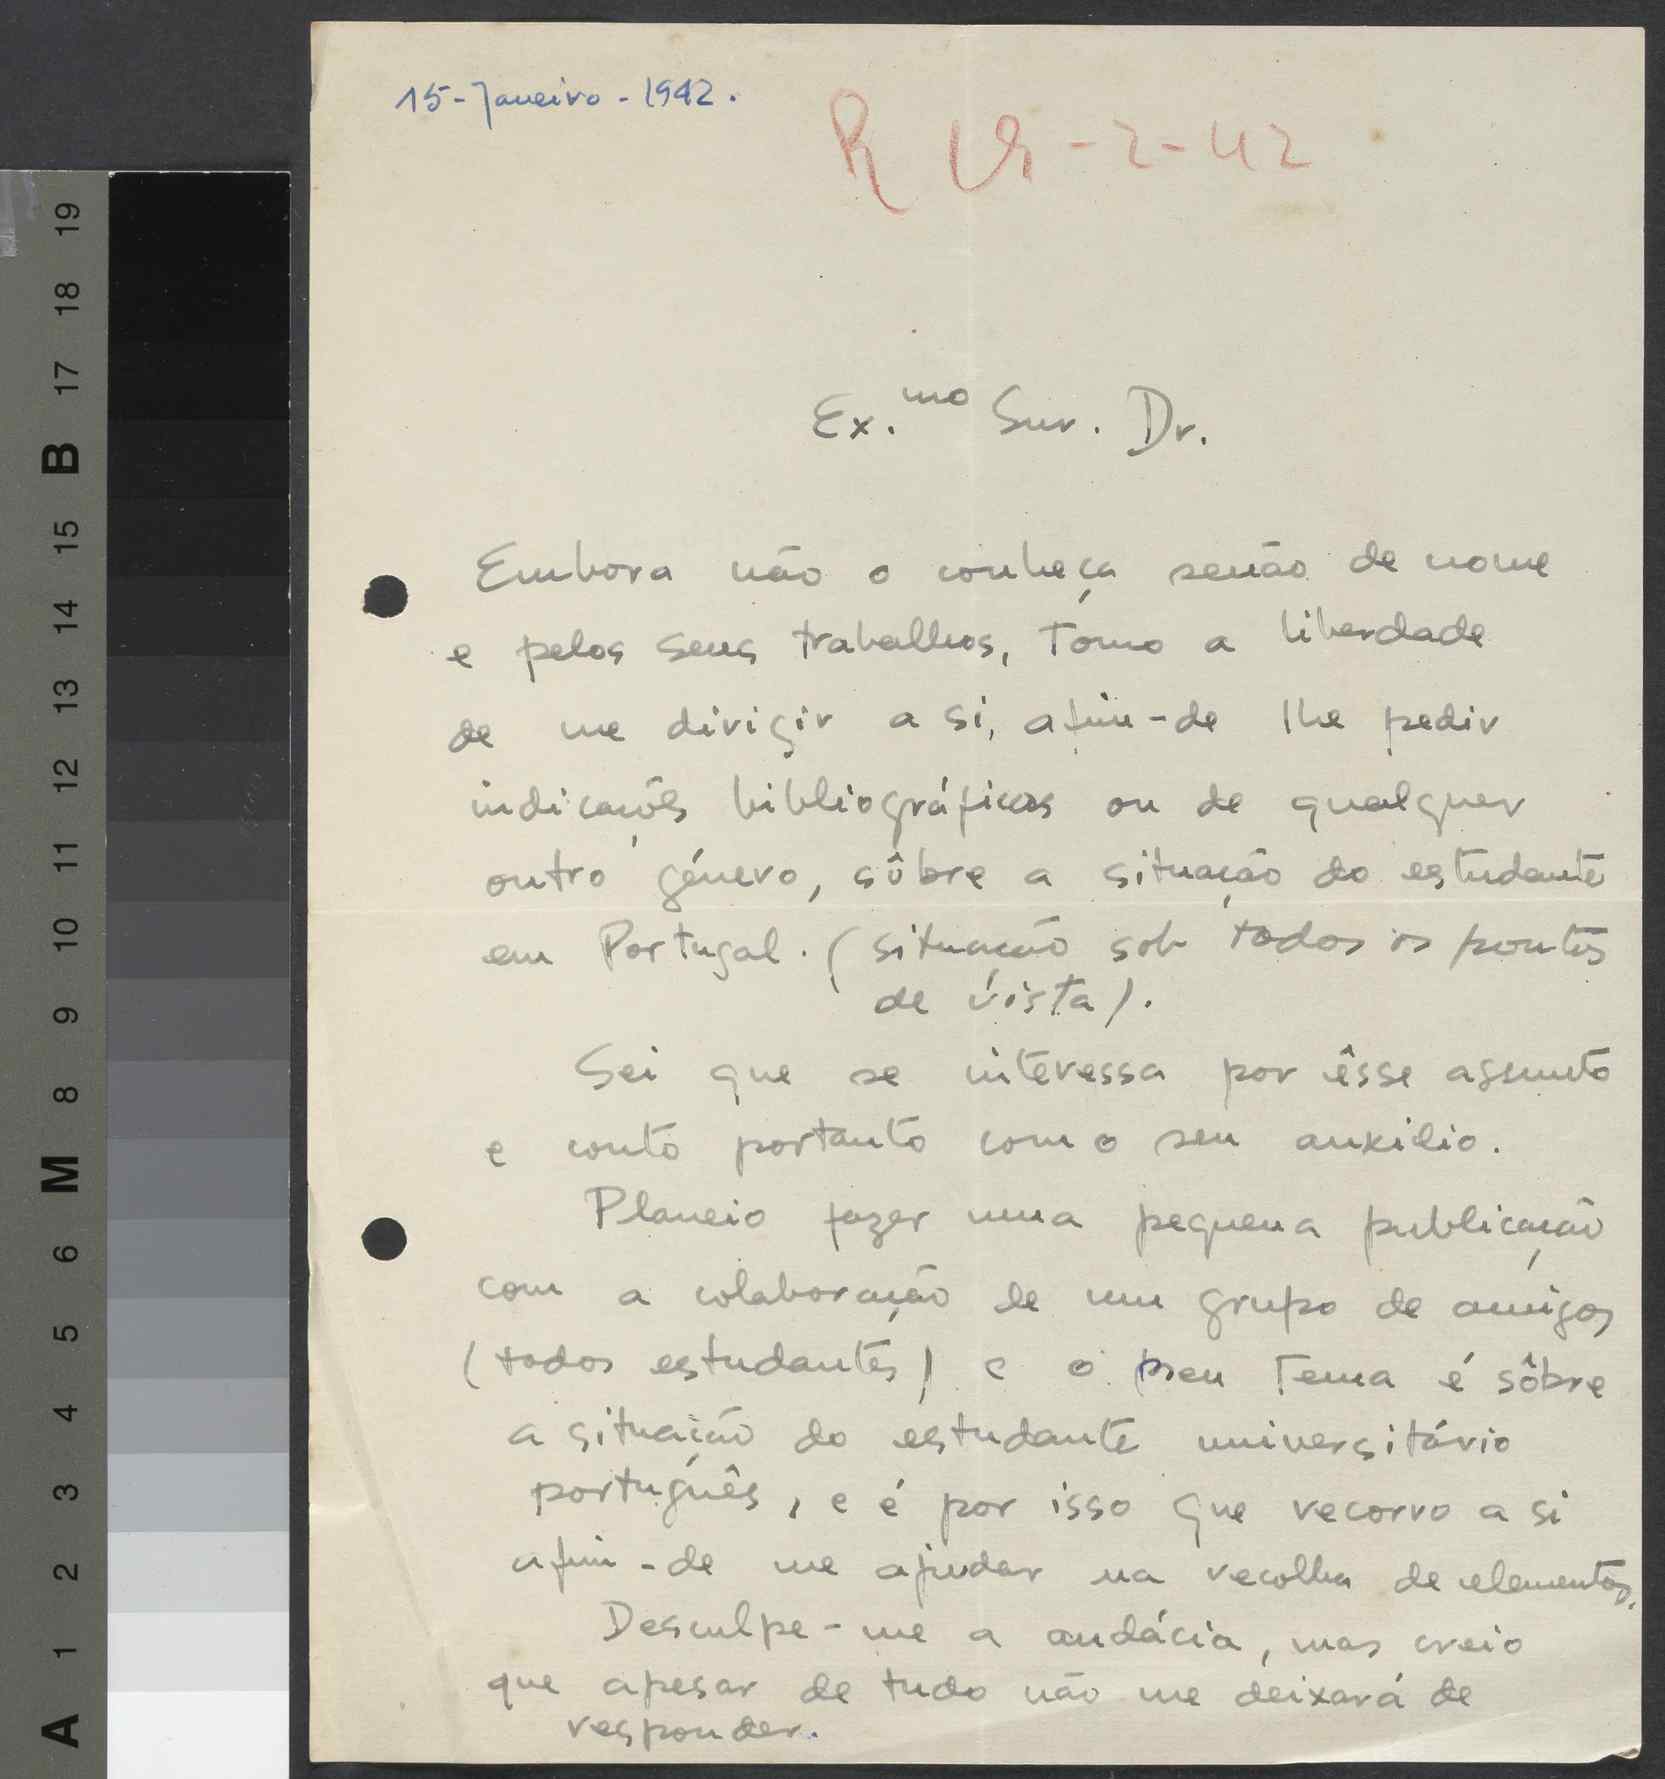 15-Janeiro-1942.
R 19-2-42
Ex.mo Snr. Dr.
Embora não o conheça senão de nome
e pelos seus trabalhos, tómo a liberdade
de me dirigir a si, afim-de lhe pedir
indicações bibliográficas ou de qualquer
outro género, sôbre a situação do estudante
em Portugal. (situação sob todos os pontos
de vista).
Sei que se interessa por êsse assunto
e conto portanto com o seu auxilio.
Planeio fazer uma pequena publicação
com a colaboração de um grupo de amigos
(todos estudantes) e o seu tema é sôbre
a situação do estudante universitário
português, e é por isso que recorro a si
afim-de me ajudar na recolha de elementos.
Desculpe-me a audácia, mas creio
que apesar de tudo não me deixará de
responder.
A 1 2 3 4 5 6 M 8 9 10 11 12 13 14 15 B 17 18 19